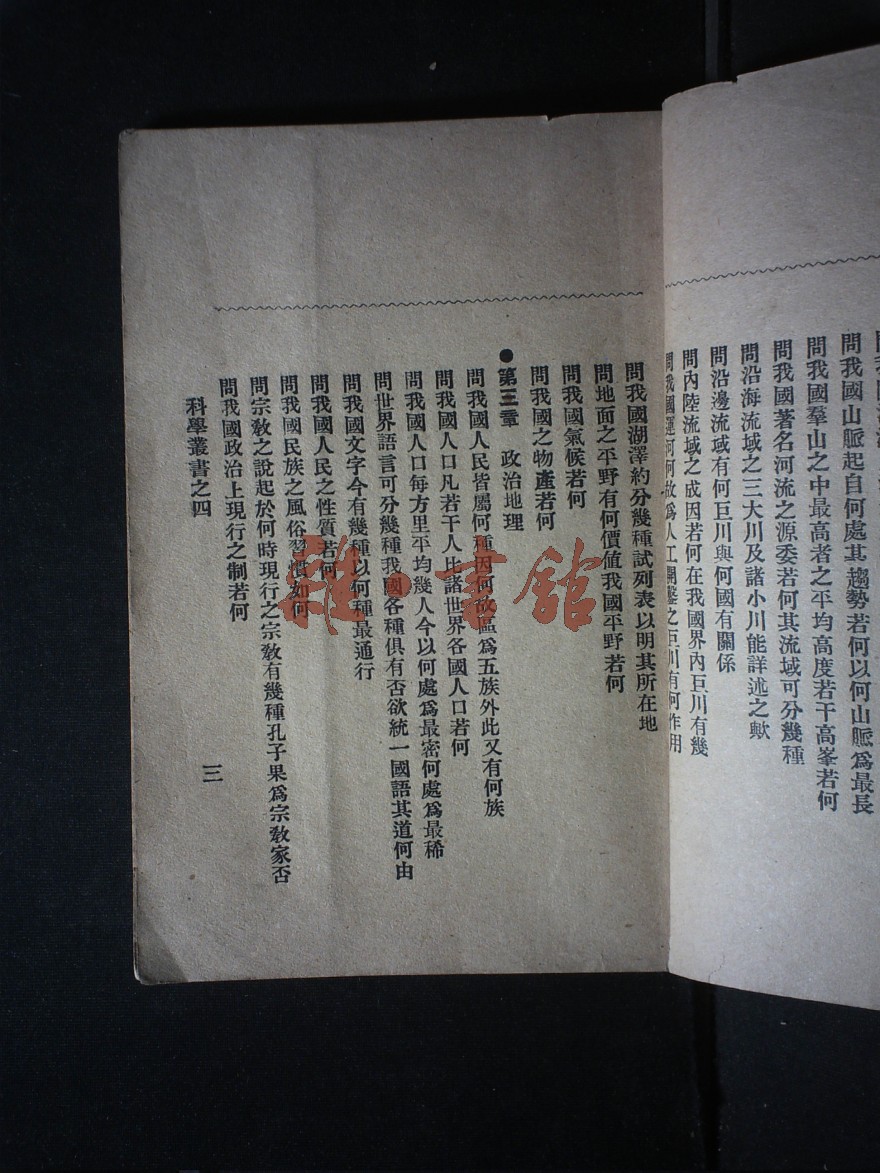 問我國山脈起自何處其趨勢若何以何山脈爲最長
問我國羣山之中最高者之平均高度若干高峯若何
問我國著名河流之源委若何其流域可分幾種
問沿海流域之三大川及諸小川能詳述之歟
問沿邊流域有何巨川與何國有關係
問內陸流域之成因若何在我國界內巨川有幾
問我國運河何故爲人工開鑿之巨川有何作用
問我國湖澤約分幾種試列表以明其所在地
問地面之平野有何價値我國平野若何
問我國氣候若何
問我國之物產若何
●第三章 政治地理
問我國人民皆屬何種因何故區爲五族外此又有何族
問我國人口凡若干人比諸世界各國人口若何
問我國人口每方里平均幾人今以何處爲最密何處爲最稀
問世界語言可分幾種我國各種俱有否欲統一國語其道何由
問我國文字今有幾種以何種最通行
問我國人民之性質若何
問我國民族之風俗習慣如何
問宗敎之說起於何時現行之宗敎有幾種孔子果爲宗敎家否
問我國政治上現行之制若何
科學叢書之四
三
書館